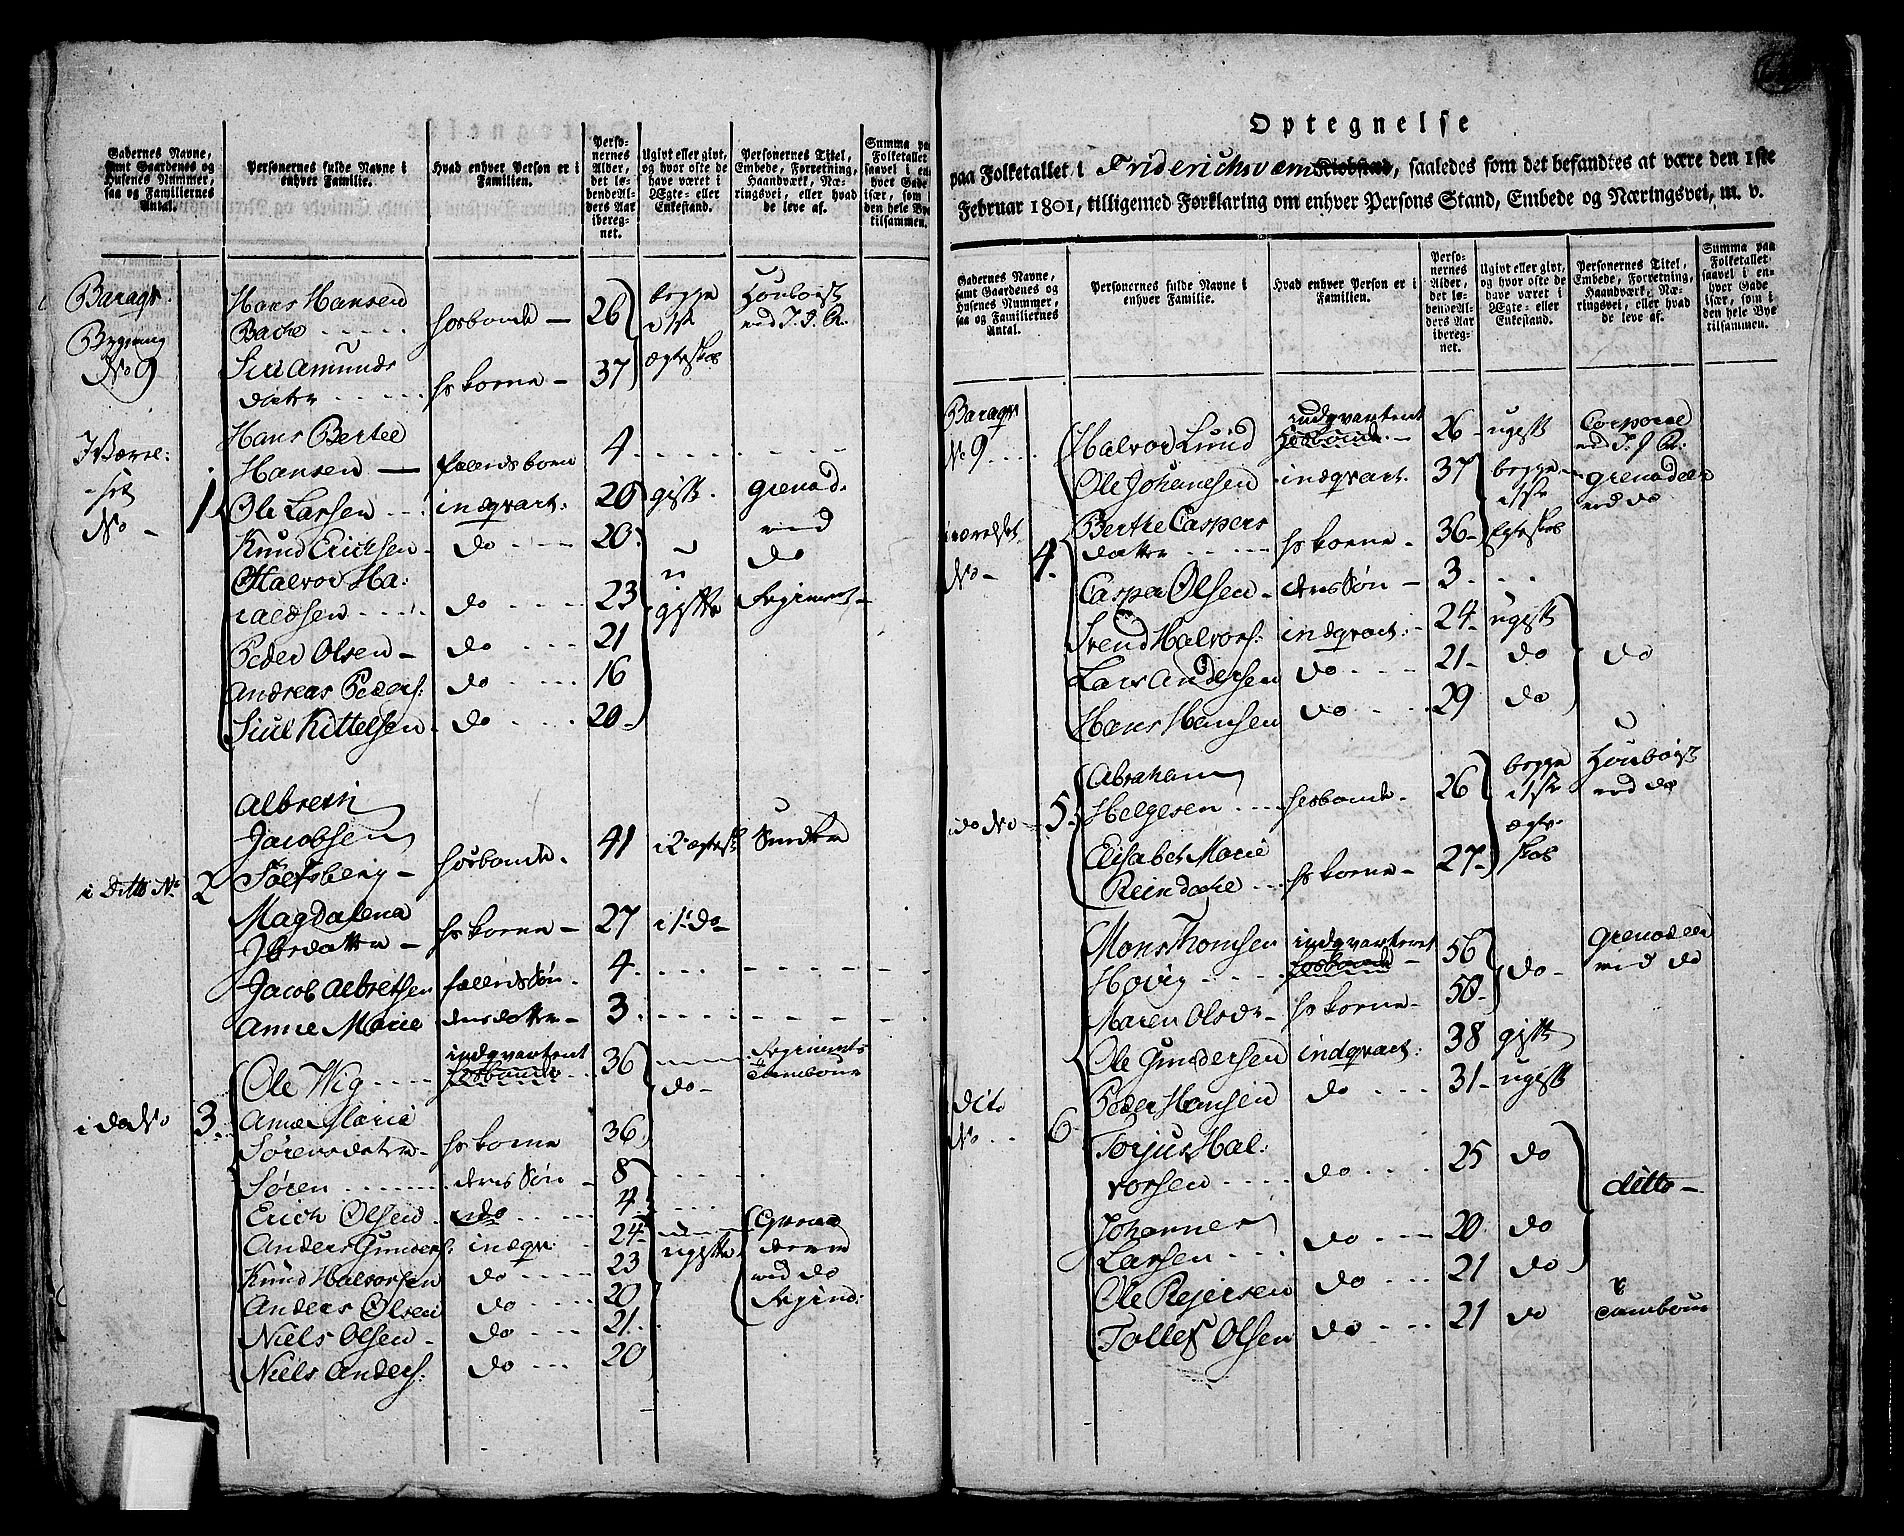 Gadernes Navne,
samt Gaardenes og
Husenes Nummer,
saa og Familiernes
Antal.
Personernes fulde Navne i
enhver Familie.
Hvad enhver Person er i
Familien.
Perso-
nernes
Alder,
det lø-
bende Al-
ders Aar
iberegnet.
Ugivt eller givt,
og hvor ofte de
have været i
Ægte- eller
Enkestand.
Personernes Titel,
Embede, Forretning,
Haandværk, Næ-
ringsvei, eller hvad
de leve af.
Summa paa
Folketallet
saavel i en-
hver Gade
især, som i
den hele Bye
tilsammen.
Baraqv
Bygning
No 9
Hans Hansen
Bache husbonde 26 begge Houboist
i 1ste ved
ægteskab
Siri Amunds
datter hs kone 37
Hans Bertel
Hansen fællesbarn 4
Værel-
set
No 1
Ole Larsen indqvart. 20 gift. grenad.
Knud Erichsen do 20 ved
Halvor Ha- do
raldsen do 23 gifte Regiment
Peder Olsen do 21
Andreas Peders: do 16
Siul Kittelsen do 20
i ditto No 2
Albreth
Jacobsen
husbonde 41 i 2 ægtesk
Magdalena
datter hs kone 27 i 1 do
Jacob Albretsen søn 4
Anne Marie datter 3
i do No 3
Ole Wig indqvarteret 36 do Regiments
husbonde Tambour
Anne Maria
Sørensdatter hs kone 36
Søren deres søn 8
Erich Olsen do 4
Anders Gunders: indqv: 24 ugifte
Knud Halvorsen do 23 ved do
Anders Olsen do 20 Regim:
Niels Olsen do 21
Niels Anders: do 20
Optegnelse
paa Folketallet i Friderichsværn Kiøbstad, saaledes som det befandtes at være den 1ste
Februar 1801, tilligemed Forklaring om enhver Persons Stand, Embede og Næringsvei, m. v.
Gadernes Navne,
samt Gaardenes og
Husenes Nummer,
saa og Familiernes
Antal.
Personernes fulde Navne i
enhver Familie.
Hvad enhver Person er i
Familien.
Perso-
nernes
Alder,
det lø-
bende Al-
ders Aar
iberegnet.
Ugivt eller givt,
og hvor ofte de
have været i
Ægte- eller
Enkestand.
Personernes Titel,
Embede, Forretning,
Haandværk, Næ-
ringsvei, eller hvad
de leve af.
Summa paa
Folketallet
saavel i en-
hver Gade
især, som i
den hele Bye
tilsammen.
Baraqv
No 9
indqvarteret
Halvor Lund husbonde 26 ugift Corporal
Ole Johanesen indqvart. 37 begge grenadeer
i 1ste ved do
i værelset
No 4
Berthe Caspers
datter hs kone 36 Egteskab
Casper Olsen deres søn 3
Svend Halvors: indqvart: 24 ugift
Lars Andersen do 21 do do
Hans Hansen do 29 do
i do No 5
Abraham
Helgesen husbonde 26 begge Houboist
i 1ste ved do
Elisabet Marie ægte-
Reindahl hs kone 27 skab
Mons Thomsen indqvarteret 56 grenadeer
Hovig husbonde do ved do
Maren Olsdr hs kone 50
Ole Gundersen indqvart: 38 gift
Peder Hansen do 31 ugift
dito
No 6
Torjus Hal-
vorsen do 25 do ditto
Johannes
Larsen do 20 do
Ole Rejersen do 21 do
Tollef Olsen do 21 do Tambour